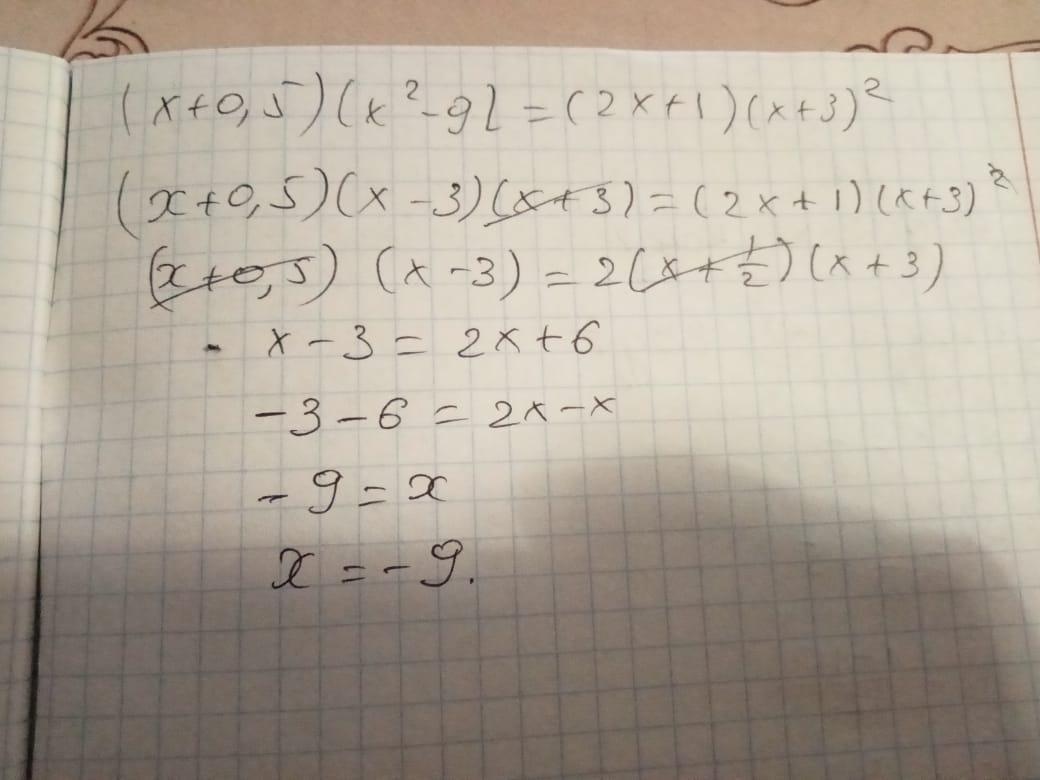 (x+0,5)(x²-9)=(2x+1)(x+3)²
(x+0,5)(x-3)(x+3)=(2x+1)(x+3)²
(x+0,5) (x-3)=2(x+1/2)(x+3)
x-3=2x+6
-3-6=2x-x
-9=x
x=-9.